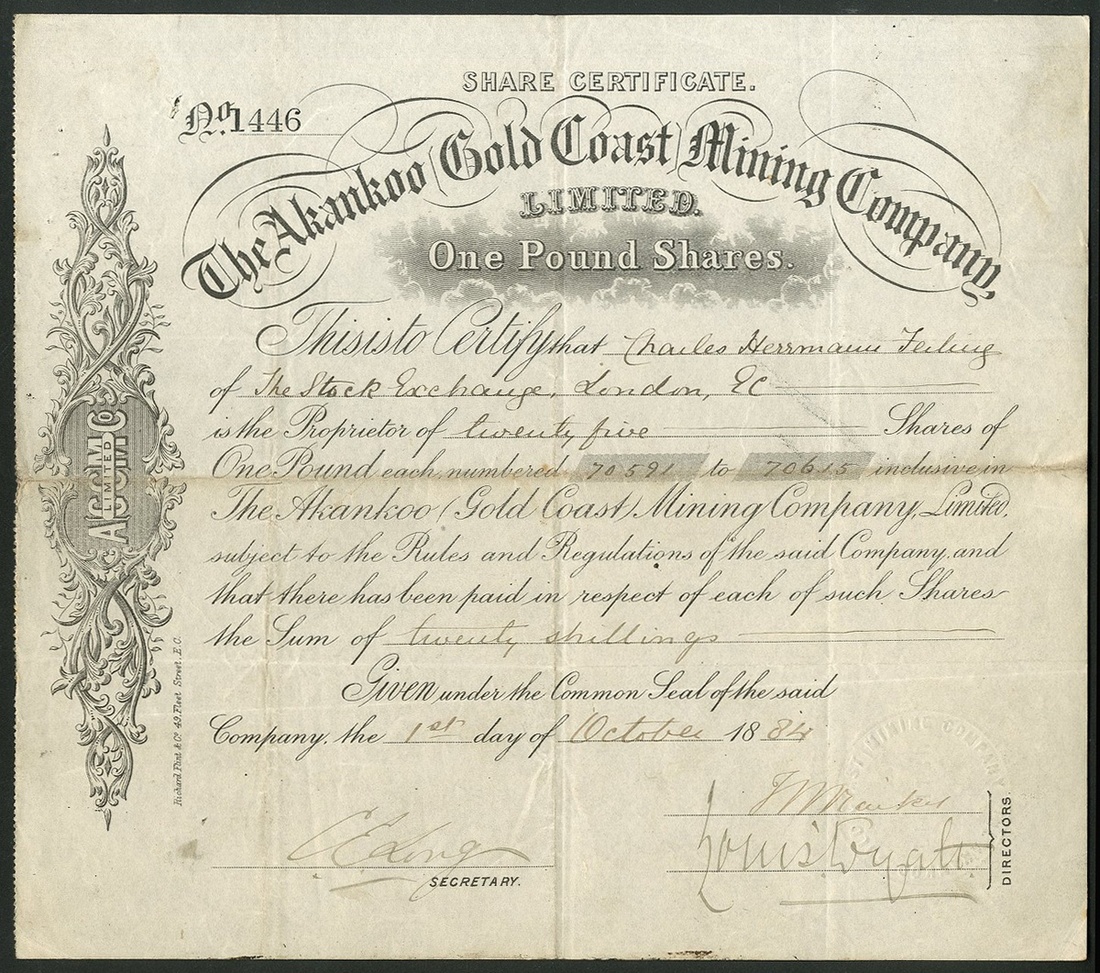 SHARE CERTIFICATE.
No. 1446
The Akankoo (Gold Coast) Mining Company,
LIMITED.
One Pound Shares.
This is to Certify that Charles Herrmann Feiling
of The Stock Exchange, London, EC
is the Proprietor of twenty five Shares of
One Pound each, numbered 70591 to 70615 inclusive in
The Akankoo (Gold Coast) Mining Company, Limited,
subject to the Rules and Regulations of the said Company, and
that there has been paid in respect of each of such Shares
the Sum of twenty shillings
Given under the Common Seal of the said
Company, the 1st day of October 1884
C E Long
SECRETARY.
Louis Wyatt
DIRECTORS.
A(GC)M Co
LIMITED
Richard Flint & Co. 49, Fleet Street, E.C.
MINING COMPANY